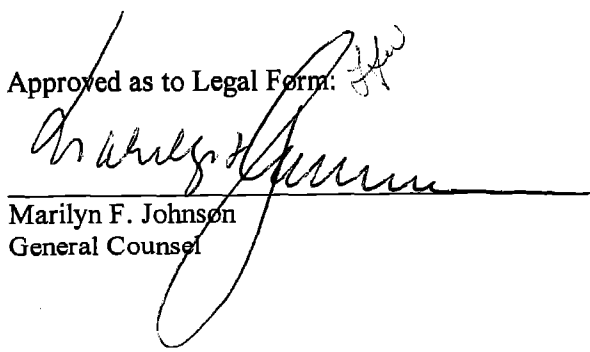 Approved as to Legal Form:
Marilyn F. Johnson
Marilyn F. Johnson
General Counsel